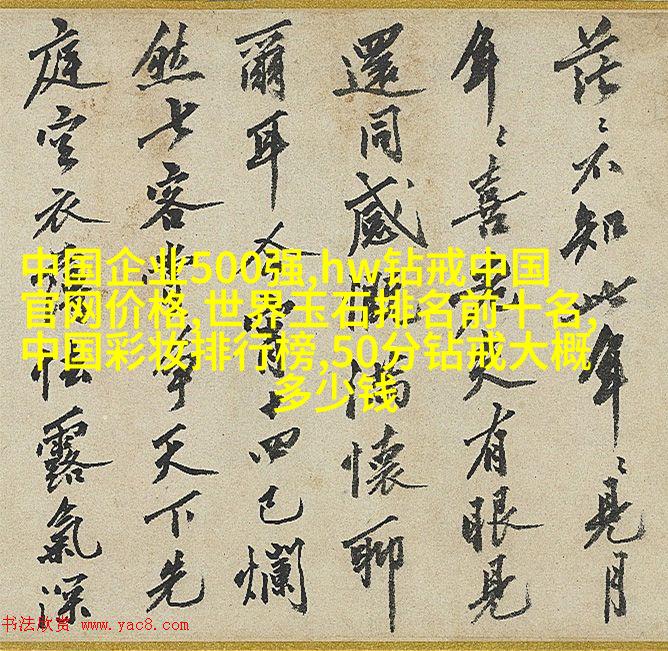 茫々不知此年々見月
年々喜有眼見
還同感滿懷聊
爾耳今宵十四已爛
然七客爭天下先
庭空衣怯露氣深
中国企业500强,hw钻戒中国
官网价格,世界玉石排名前十名,
中国彩妆排行榜,50分钻戒大概
多少钱
书法欣赏 www.yac8.com